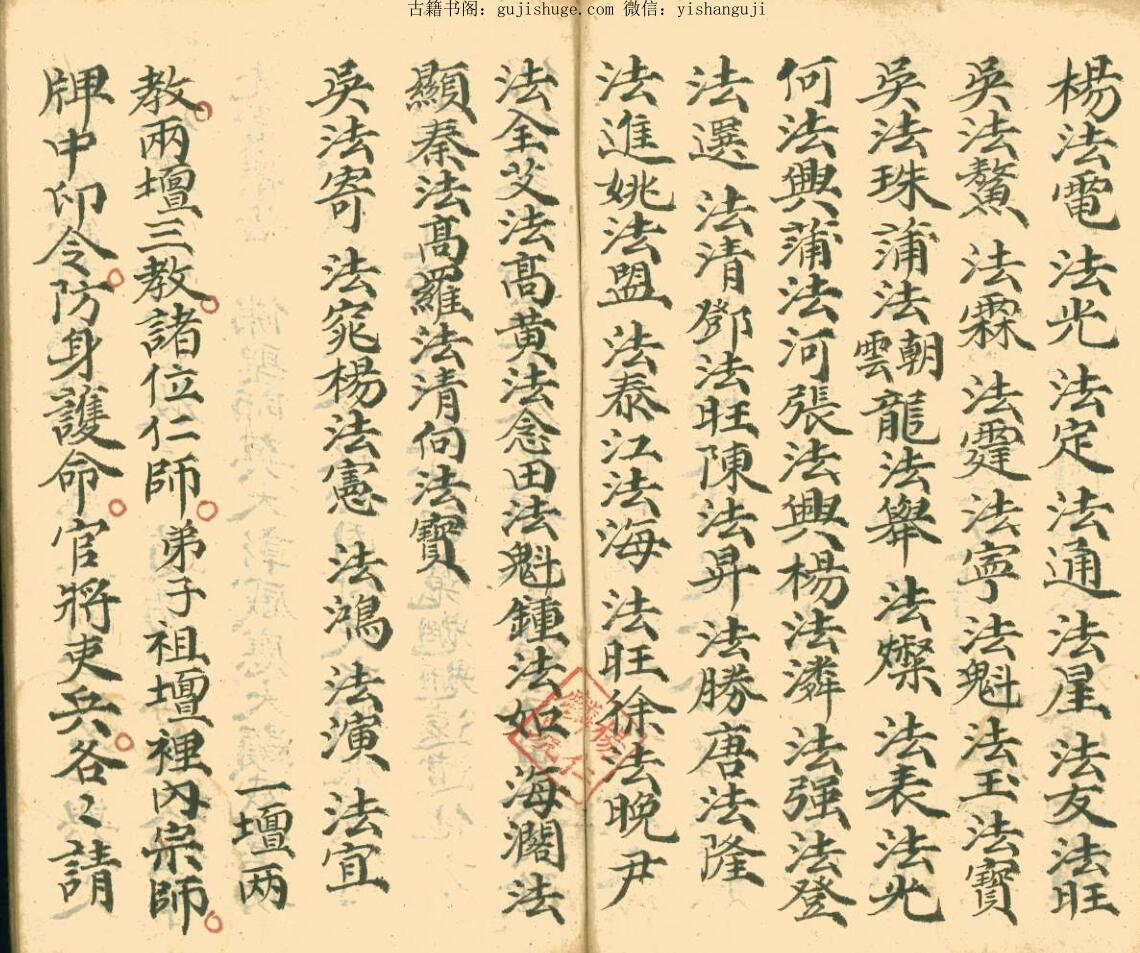 古籍书阁：gujishuge.com 微信：yishanguji
楊法電 法光 法定 法通 法星 法友 法旺
吳法鰲 法霖 法霆 法寧 法魁 法玉 法寶
吳法珠 蒲法朝雲 龍法舉 法燦 法表 法光
何法興蒲法河張法興楊法潾法强法登
法選 法清鄧法旺陳法昇 法勝唐法隆
法進姚法盟 法泰江法海 法旺徐法晚尹
法全艾法髙黄法念田法魁鍾法姫海濶法
顯秦法髙羅法清向法寳
吳法寄 法窕楊法憲 法鴻 法演 法宜
一壇两
教兩壇三教諸位仁師弟子祖壇裡内宗師
牌中印令防身護命官將吏兵各〻請